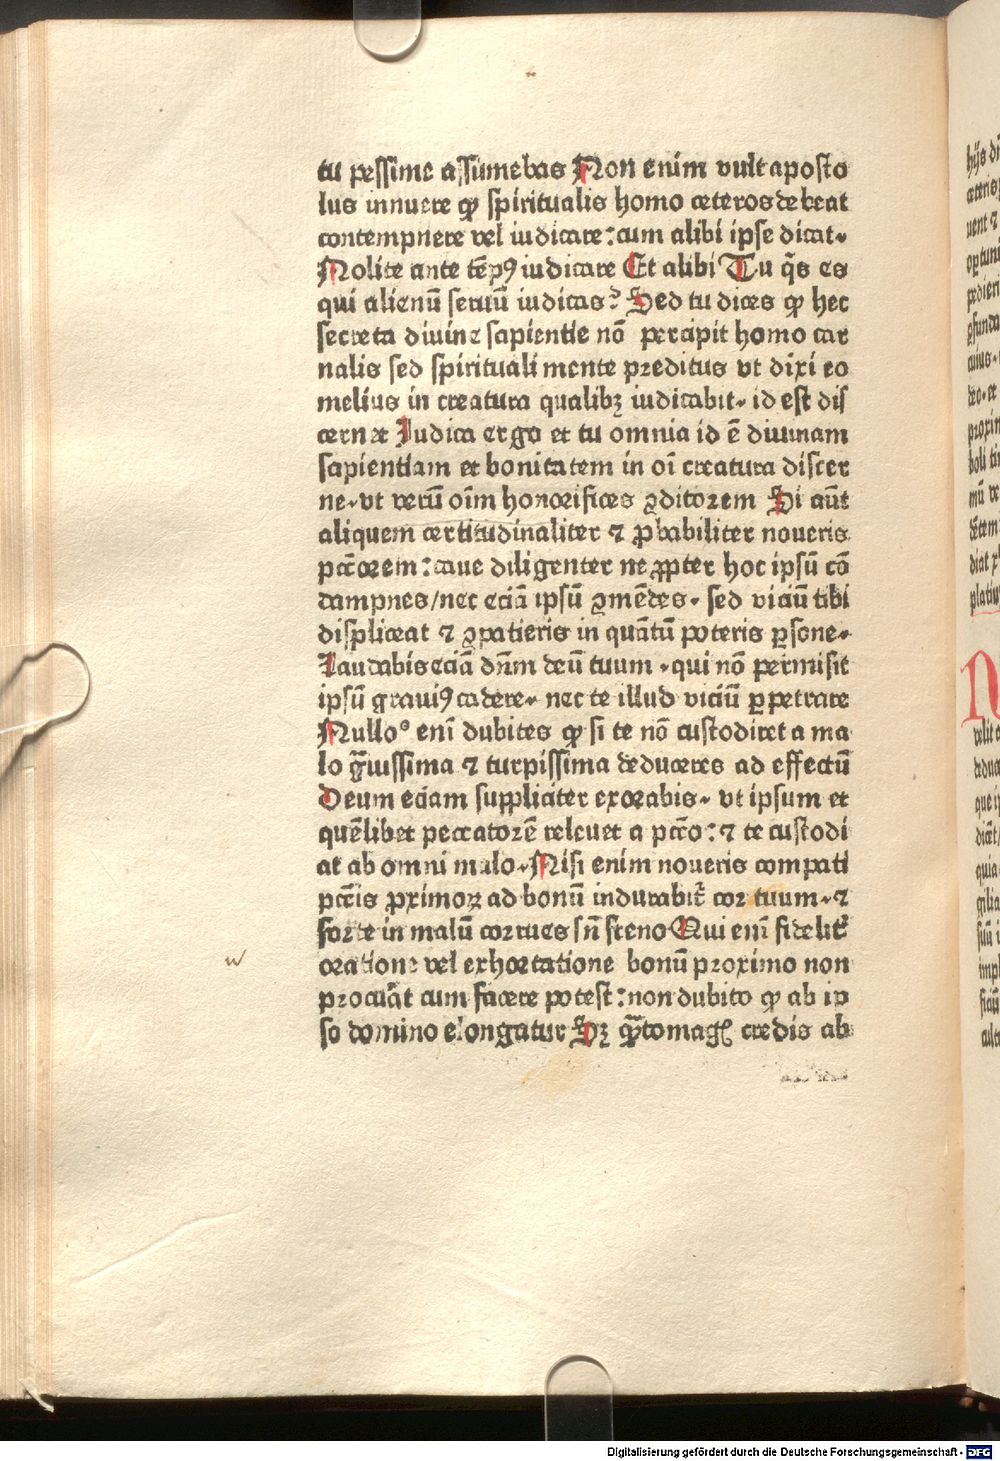 tu pessime assumebas Non enim vult aposto
lus innuere ꝙ spiritualis homo ceteros debeat
contempnere vel iudicare: cum alibi ipse dicat.
Nolite ante tēpꝰ iudicare Et alibi Tu q̄s es
qui alienū seruū iudicas? Sed tu dices ꝙ hec
secreta diuine sapientie nō percipit homo car
nalis sed spirituali mente preditus vt dixi eo
melius in creatura qualibꝫ iudicabit. id est dis
cernæ Iudica ergo et tu omnia id ē diuinam
sapientiam et bonitatem in oī creatura discer
ne. vt verū oīm honorifices ꝯditorem Si aūt
aliquem certitudinaliter ⁊ ꝓbabiliter noueris
pctōrem: caue diligenter ne ꝓpter hoc ipsū cō
dampnes/nec eciā ipsū ꝯmēdes. sed viciū tibi
displiceat ⁊ ꝯpatieris in quātū poteris ꝑsone.
Laudabis eciā dn̄m deū tuum. qui nō permisit
ipsū grauiꝰ cadere. nec te illud viciū ꝑpetrare
Nulloº enī dubites ꝙ si te nō custodiret a ma
lo g̃uissima ⁊ turpissima deduceres ad effectū
Deum eciam suppliciter exorabis. vt ipsum et
quēlibet peccatorē releuet a pctō: ⁊ te custodi
at ab omni malo. Nisi enim noueris compati
pctīs ꝓximoꝝ ad bonū indurabit̄ cor tuum. ⁊
forte in malū corrues sn̄ freno Qui enī fidelit̄
oratione vel exhortatione bonū proximo non
procurāt cum facere potest: non dubito ꝙ ab ip
so domino elongatur Sꝫ q̄to magꝭ credis ab
w
hijs
Digitalisierung gefördert durch die Deutsche Forschungsgemeinschaft - DFG